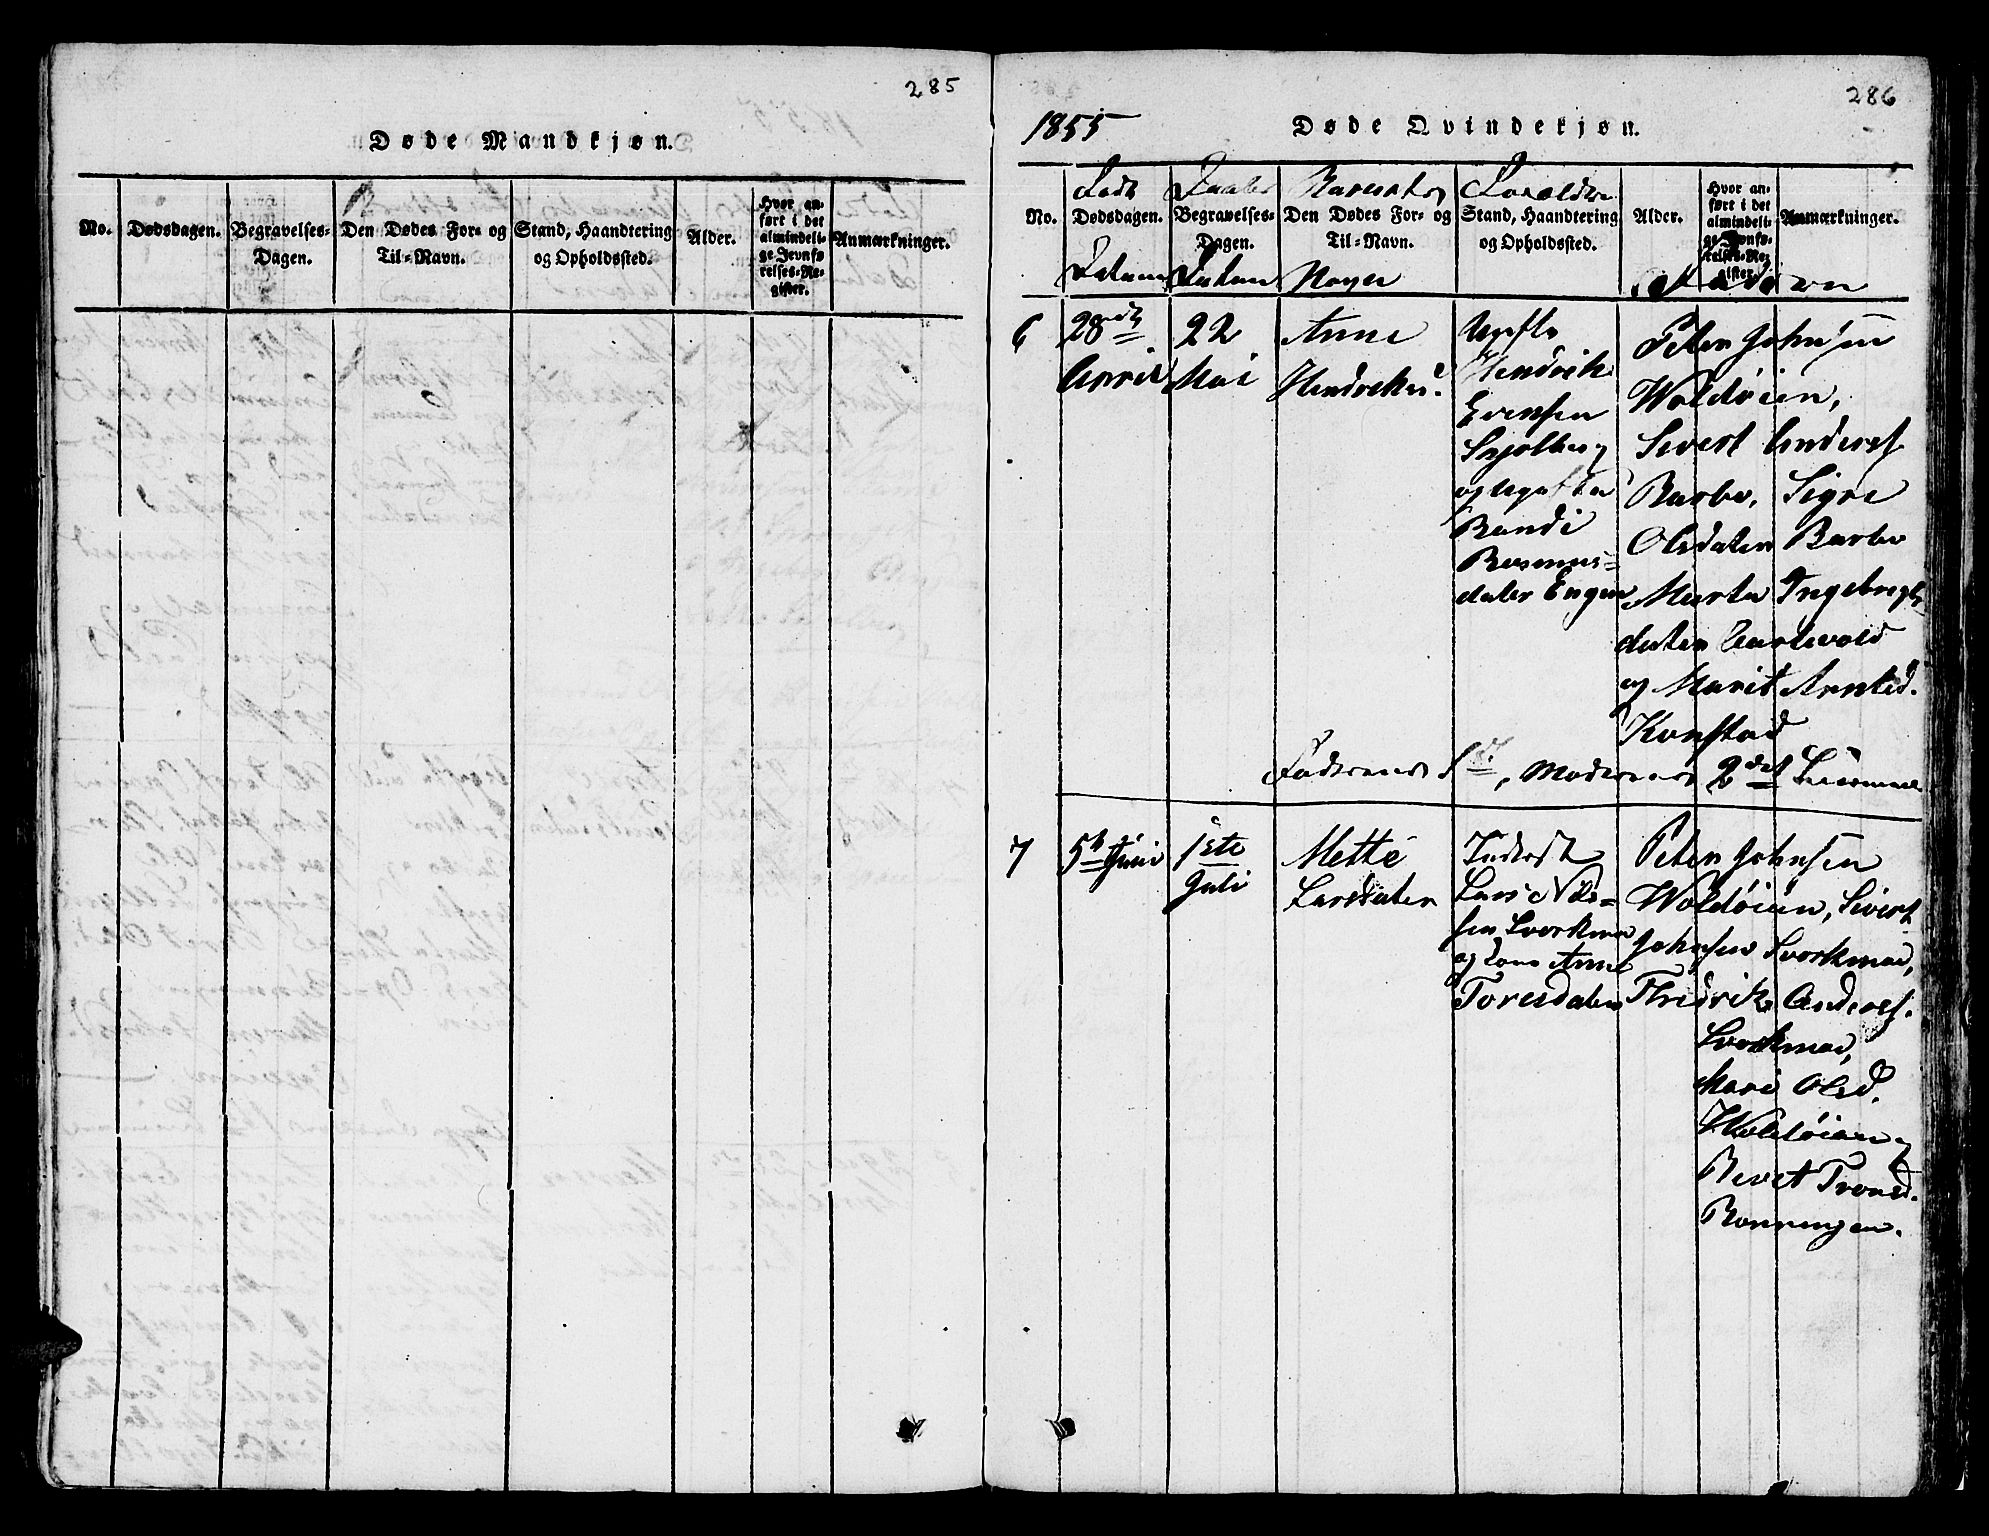 285
Døde Mandkjøn.
No.
Dødsdagen.
Begravelses-
Dagen.
Den Dødes For- og
Til-Navn.
Stand, Haandtering
og Opholdssted.
Alder.
Hvor an-
ført i det
almindeli-
ge Jevnfø-
relses-Re-
gister.
Anmærkninger.
286
1855
Døde Qvindekjøn.
No.
Dødsdagen.
Datum
Begravelses-
Dagen.
Datum
Den Dødes For- og
Til-Navn.
Stand, Haandtering
og Opholdssted.
Alder.
Hvor an-
ført i det
almindeli-
ge Jevnfø-
relses-Re-
gister.
Anmærkninger.
6
28
April
22
Mai
Anne
Ugifte
Hendrik
Evensen
og Ugifte
Randi
Rasmus-
dater Engen
Peter Johnsen
Woldøien,
Sivert Anders.
Barbo, Sigri
Olsdater Barbo
Marta Ingebrigts
dater
og Marit Arntsd.
Konstad
Faderens 1, Moderens 2det
7
5 Juni
1ste
Juli
Mette
Larsdater
Inderst
Lars Nils-
sen Svorkmo
og Kone Anne
Toresdater
Peter Johnsen
Woldøien, Sivert
Johnsen Svorkmoe,
Fredrik Anders.
Svorkmoe,
Mari Olsd.
Woldøien og
Beret Tronds.
Rønningen.